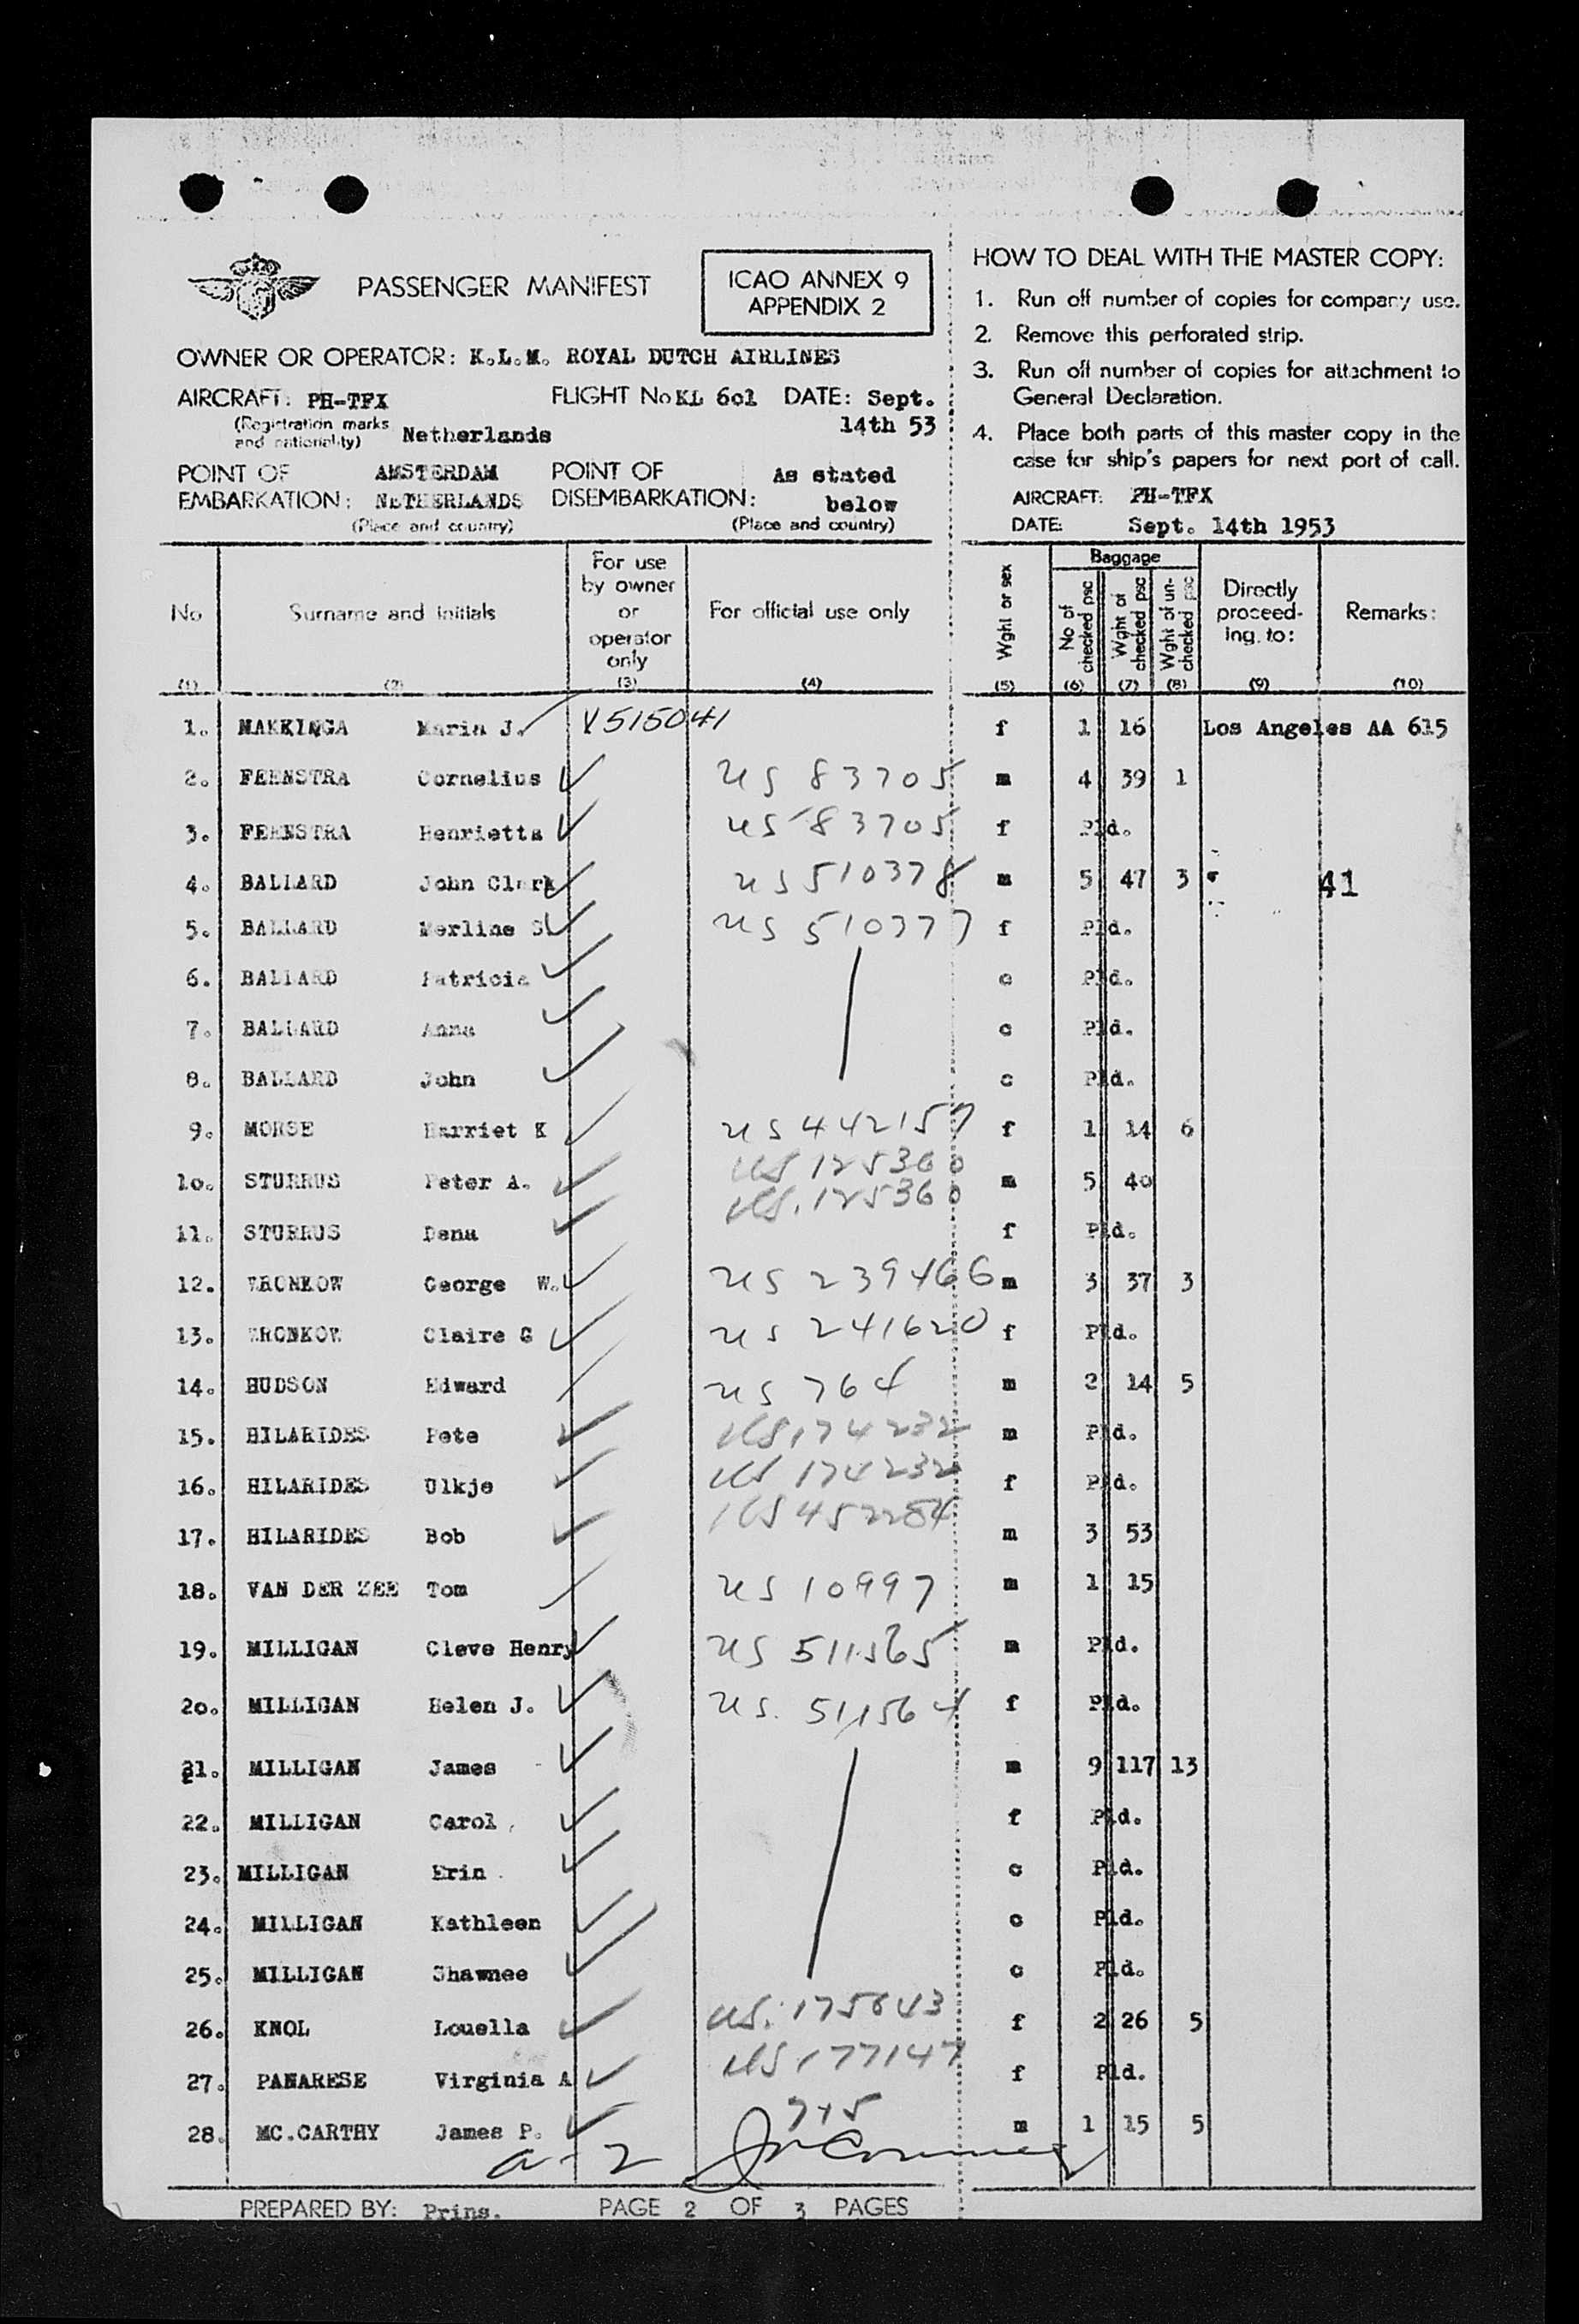 PASSENGER MANIFEST
ICAO ANNEX 9
APPENDIX 2
OWNER OR OPERATOR: K.L.M. ROYAL DUTCH AIRLINES
AIRCRAFT: PH-TFX FLIGHT No KL 6o1 DATE: Sept. 14th 53
(Registration marks and nationality) Netherlands
POINT OF EMBARKATION: AMSTERDAM NETHERLANDS
(Place and country)
POINT OF DISEMBARKATION: As stated below
(Place and country)
HOW TO DEAL WITH THE MASTER COPY:
1. Run off number of copies for company use.
2. Remove this perforated strip.
3. Run off number of copies for attachment to
General Declaration.
4. Place both parts of this master copy in the
case for ship's papers for next port of call.
AIRCRAFT: PH-TFX
DATE: Sept. 14th 1953
No (1)
Surname and initials (2)
For use by owner or operator only (3)
For official use only (4)
Wght or sex (5)
Baggage
No of checked psc (6)
Wght of checked psc (7)
Wght of un-checked psc (8)
Directly proceed-ing. to: (9)
Remarks: (10)
1. MAKKINGA Maria J. V515041 f 1 16 Los Angeles AA 615
2. FEENSTRA Cornelius US 83705 m 4 39 1
3. FEENSTRA Henrietta US 83705 f Pld.
4. BALLARD John Clark US 510378 m 5 47 3 41
5. BALLARD Merline S US 510377 f Pld.
6. BALLARD Patricia c Pld.
7. BALLARD Anna c Pld.
8. BALLARD John c Pld.
9. MORSE Harriet K US 442157 f 1 14 6
1o. STURRUS Peter A. US 125360 m 5 4o
11. STURRUS Dena US. 125360 f Pld.
12. WRONKOW George W. US 239466 m 3 37 3
13. WRONKOW Claire G US 241620 f Pld.
14. HUDSON Edward US 764 m 2 14 5
15. HILARIDES Pete US 174232 m Pld.
16. HILARIDES Ulkje US 174232 f Pld.
17. HILARIDES Bob US 452284 m 3 53
18. VAN DER ZEE Tom US 10997 m 1 15
19. MILLIGAN Cleve Henry US 511565 m Pld.
2o. MILLIGAN Helen J. US. 511564 f Pld.
21. MILLIGAN James m 9 117 13
22. MILLIGAN Carol f Pld.
23. MILLIGAN Erin c Pld.
24. MILLIGAN Kathleen c Pld.
25. MILLIGAN Shawnee c Pld.
26. KNOL Louella US. 175643 f 2 26 5
27. PANARESE Virginia A US 177147 f Pld.
28. MC.CARTHY James P. 715 m 1 15 5
a-2
PREPARED BY: Prins. PAGE 2 OF 3 PAGES